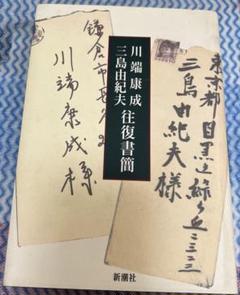 川端康成
三島由紀夫
往復書簡
東京都
目黒区緑ヶ丘二三二三
三島由紀夫様
鎌倉市長谷
川端康成様
新潮社